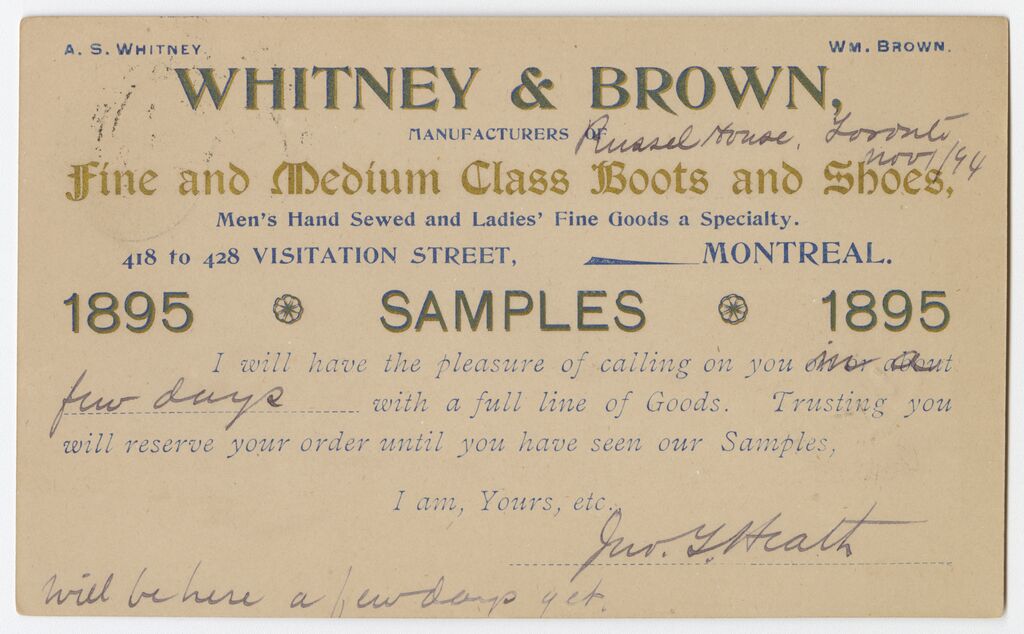 A. S. WHITNEY. WM. BROWN.
WHITNEY & BROWN,
MANUFACTURERS OF
Russel House, Toronto
Nov 1/94
Fine and Medium Class Boots and Shoes,
Men's Hand Sewed and Ladies' Fine Goods a Specialty.
418 to 428 VISITATION STREET, MONTREAL.
1895 SAMPLES 1895
I will have the pleasure of calling on you in a about
few days with a full line of Goods. Trusting you
will reserve your order until you have seen our Samples,
I am, Yours, etc.,
Jno. Heath
will be here a few days yet.